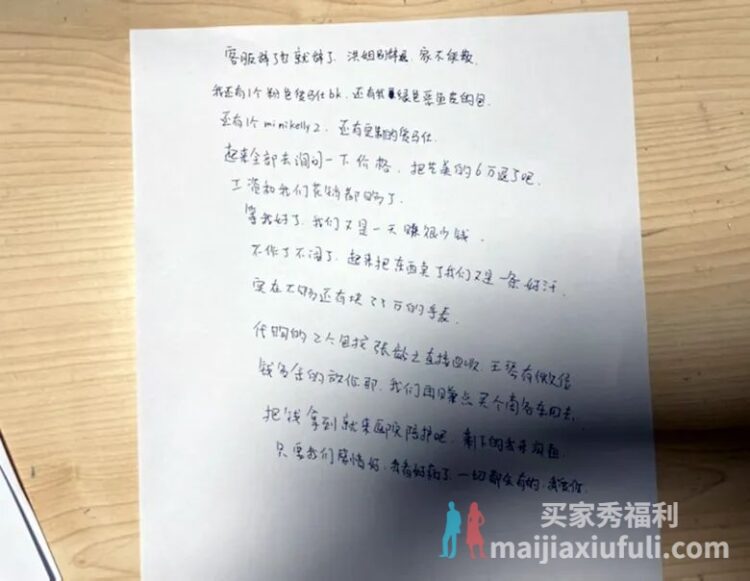 客服辞了也就辞了. 洪姐别辞退. 家不能散.
我还有1个粉色爱马仕bk. 还有我绿色恶鱼皮的包.
还有1个minikelly2. 还有定制的爱马仕
起来全部去询问一下价格, 把芝美的6万退了吧.
工资和我们花销都够了.
等我好了. 我们又是一天赚很多钱.
不作了不闹了. 起来把东西卖了我们又是一条好汗.
实在不够还有块23万的手表.
代购的2个包按张龄之直接回收. 王琴有微信
钱多余的放你那. 我们再赚点买个商务车回去.
把钱拿到就来医院陪护吧. 剩下的我来沟通.
只要我们感情好. 我看好病了. 一切都会有的. 我爱你.
买家秀福利
maijiaxiufuli.com